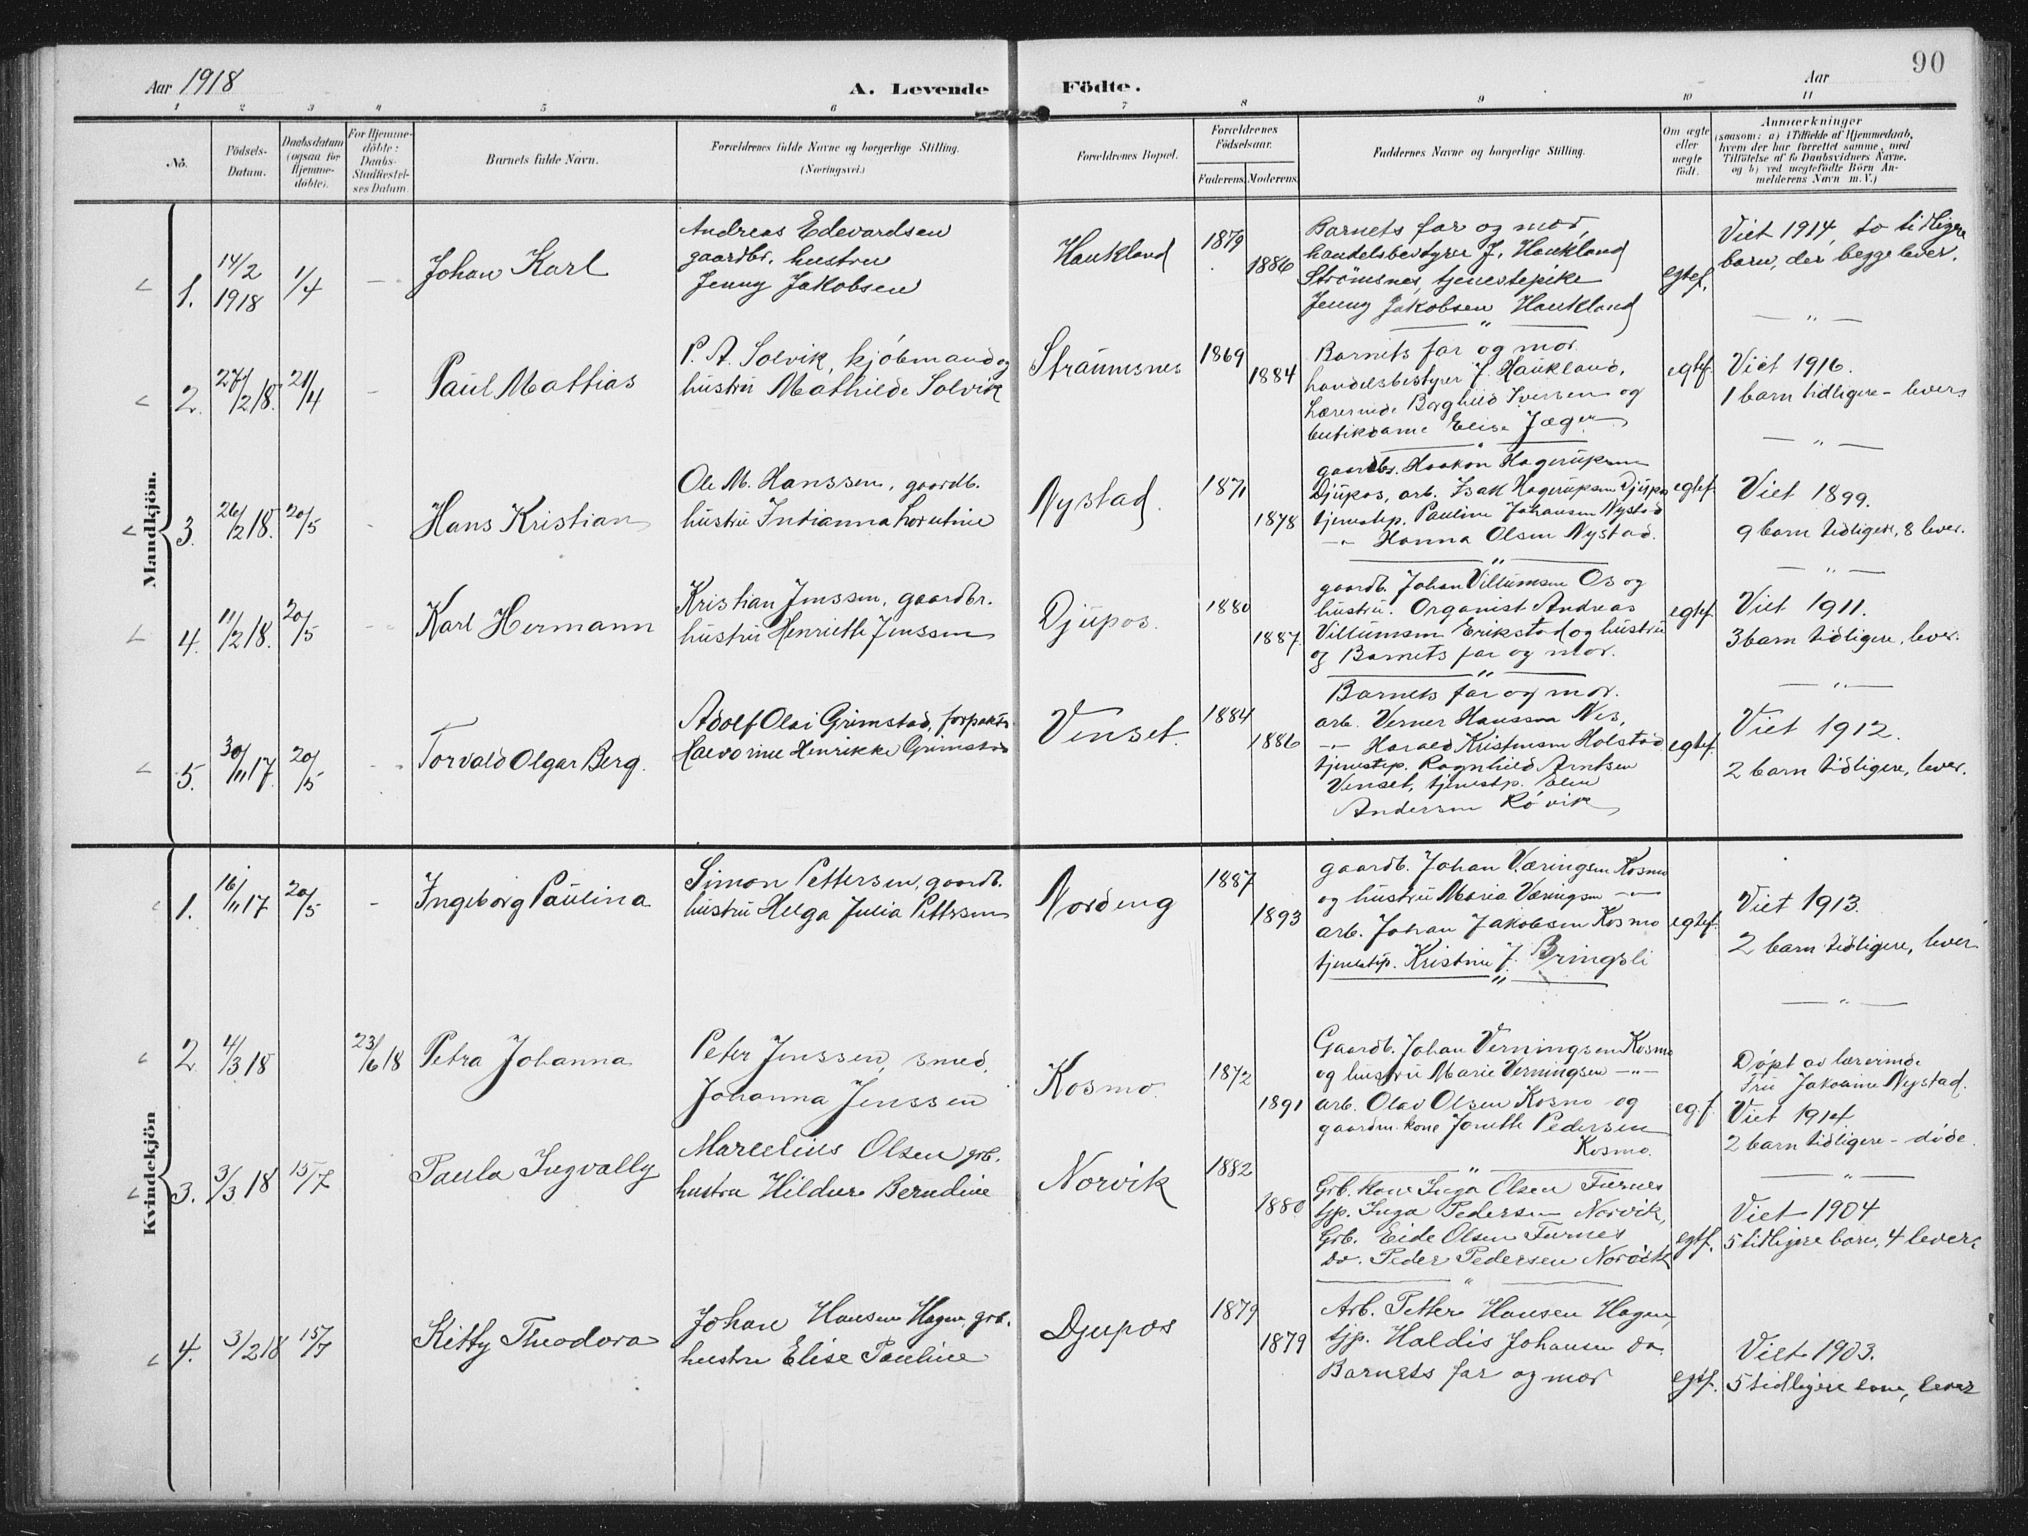 Aar 1918
A. Levende Födte.
Aar
90
1 2 3 4 5 6 7 8 9 10 11
No.
Födsels-
Datum.
Daabsdatum
(ogsaa for
Hjemme-
döbte).
For Hjemme-
döbte:
Daabs-
Stadfæstel-
ses Datum.
Barnets fulde Navn.
Forældrenes fulde Navne og borgerlige Stilling.
(Næringsvei.)
Forældrenes Bopæl.
Forældrenes
Födselsaar.
Faderens. Moderens.
Faddernes Navne og borgerlige Stilling.
Om ægte
eller
uægte
födt.
Anmærkninger
(saasom: a) i Tilfælde af Hjemmedaab,
hvem der har forrettet samme, med
Tilföielse af to Daabsvidners Navne,
og b) ved uægtefödte Börn An-
melderens Navn m. V.)
Mandkjön.
1. 14/2 1918 1/4 - Johan Karl
Andreas Edevardsen
gaardbr. hustru
Jenny Jakobsen
Haukland 1879 1886
Barnets far og mor,
handelsbestyrer J. Haukland
Strömsnes, tjenestepike
Jenny Jakobsen Haukland
egtef.
Viet 1914, to tidligre
barn, der begge lever.
2. 27/2 18. 21/4 - Paul Mattias
P. A. Solvik, kjöbmand og
hustru Mathilde Solvik
Straumsnes 1869 1884
Barnets far og mor.
handelsbestyrer J. Haukland,
Lærerinde Borghild Iversen og
butikdame Elise Jæger
egtf.
Viet 1916.
1 barn tidligere - lever
3. 26/2 18. 20/5 - Hans Kristian
Ole M. Hanssen, gaardb.
hustru Indianna
Nystad. 1871 1878
gaardbr. Haakon Hagerupsen
Djupos, arb. Isak Hagerupsen Djupos
tjenestep. Pauline Johansen Nystad
-"- Hanna Olsen Nystad.
egtef.
Viet 1899.
9 barn tidligere, 8 lever.
4. 11/2 18. 20/5 - Karl Hermann
Kristian Jenssen, gaardbr.
hustru Henriette Jenssen
Djupos. 1880 1887.
gaardb. Johan Villumsen Os og
hustru. Organist Andreas
Villumsen Erikstad og hustru
og Barnets far og mor.
egtef.
Viet 1911.
3 barn tidligere, lever.
5. 30/11 17. 20/5 - Torvald Olgar Berg.
Adolf Olai Grimstad, forpakt.
Halvorine Henrikke Grimstad
Venset. 1884 1886
Barnets far og mor.
arb. Verner Hanssen Nes,
-"- Harald Kristensen Holstad
tjenestep. Ragnhild Arntsen
Venset, tjenestp.
Andersen Røvik
egtef.
Viet 1912.
2 barn tidligere, lever.
Kvindekjön
1. 16/11 17 20/5 - Ingeborg Paulina
Simon Pettersen, gaardb.
hustru Helga Julia Pettersen
Nordeng 1887 1893
gaardb. Johan Væringsen Kosmo
og hustru Maria Væringsen -"-
arb. Johan Jakobsen Kosmo
tjenestp. Kristine J. Bringsli
egtef.
Viet 1913.
2 barn tidligere, lever
2. 4/3 18 23/6 18 Petra Johanna
Peter Jenssen, smed.
Johanna Jenssen
Kosmo. 1872 1891
Gaardb. Johan Verningsen Kosmo
og hustru Marie Verningsen -"-
arb. Olav Olsen Kosmo og
gaardm. kone Jonette Pedersen
Kosmo.
eg.f.
Døpt av lærerinde
Fru Jakobine Nystad.
Viet 1914.
2 barn tidligere - døde.
3. 3/3 18 15/7 Paula Ingvally
Marcelius Olsen grb.
hustru Hildur Berndine
Norvik 1882 1880
Grb. kone Inga Olsen Furnes
tjp. Inga Pedersen Norvik,
Grb. Eide Olsen Furnes
do. Peder Pedersen Norvik
egtf.
Viet 1904
5 tidligere barn, 4 lever.
4. 3/2 18 15/7 Kitty Theodora
Johan Hansen Hagen, grb.
hustru Elise Pauline
Djupos 1879 1879
Arb. Petter Hansen Hagen,
tjp. Haldis Johansen do.
Barnets far og mor
egtf.
Viet 1903.
5 tidligere barn, lever